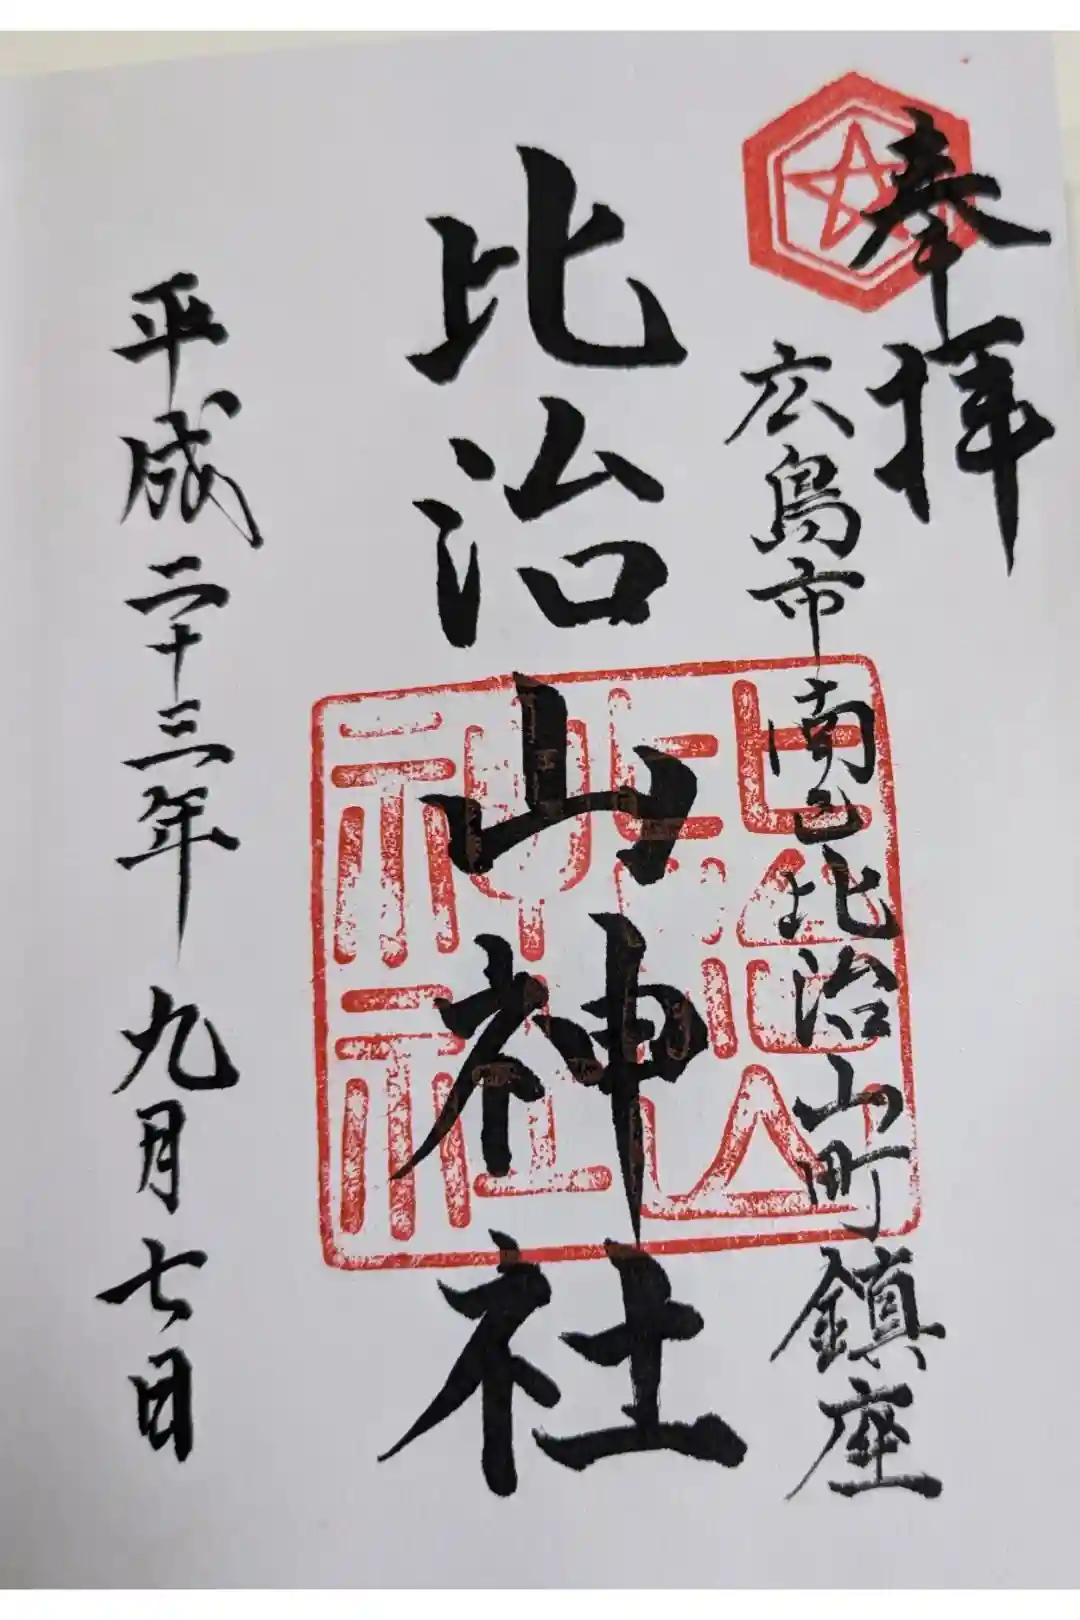 奉拝
広島市南区比治山町鎮座
比治山神社
平成二十三年九月七日
比治山
神社